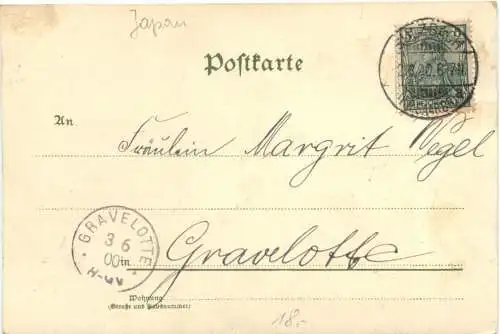 Japan
Postkarte
An
Fräulein Margrit Vegel
GRAVELOTTE
3 6
00
Gravelotte
Wohnung
(Straße und Hausnummer)
18.-